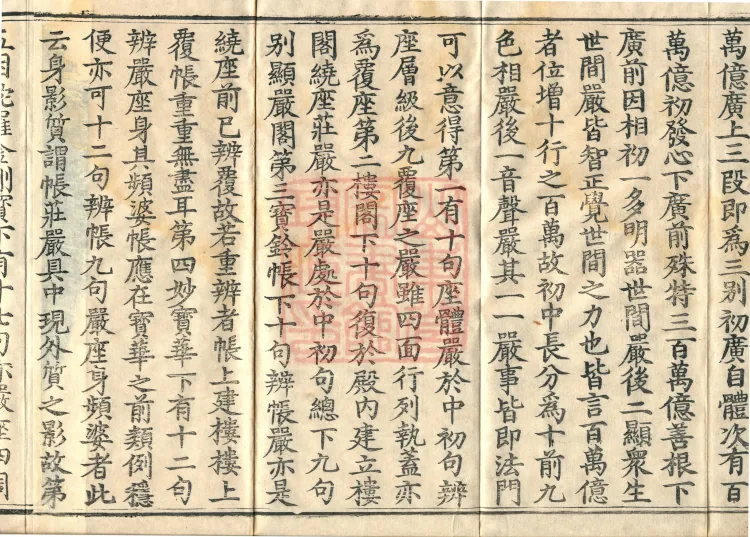 萬億廣上三段即爲三別初廣自體次有百
萬億初發心下廣前殊特三百萬億善根下
廣前因相初一多明器世間嚴後二顯衆生
世間嚴皆智正覺世間之力也皆言百萬億
者位增十行之百萬故初中長分爲十前九
色相嚴後一音聲嚴其一一嚴事皆即法門
可以意得第一有十句座體嚴於中初句辨
座層級後九覆座之嚴雖四面行列執蓋亦
爲覆座第二樓閣下十句復於殿内建立樓
閣繞座莊嚴亦是嚴處於中初句總下九句
別顯嚴閣第三寶鈴帳下十句辨帳嚴亦是
繞座前已辨覆故若重辨者帳上建樓樓上
覆帳重重無盡耳第四妙寶華下有十二句
辨嚴座身其頻婆帳應在寶華之前類例穩
便亦可十二句辨帳九句嚴座身頻婆者此
云身影質謂帳莊嚴具中現外質之影故第